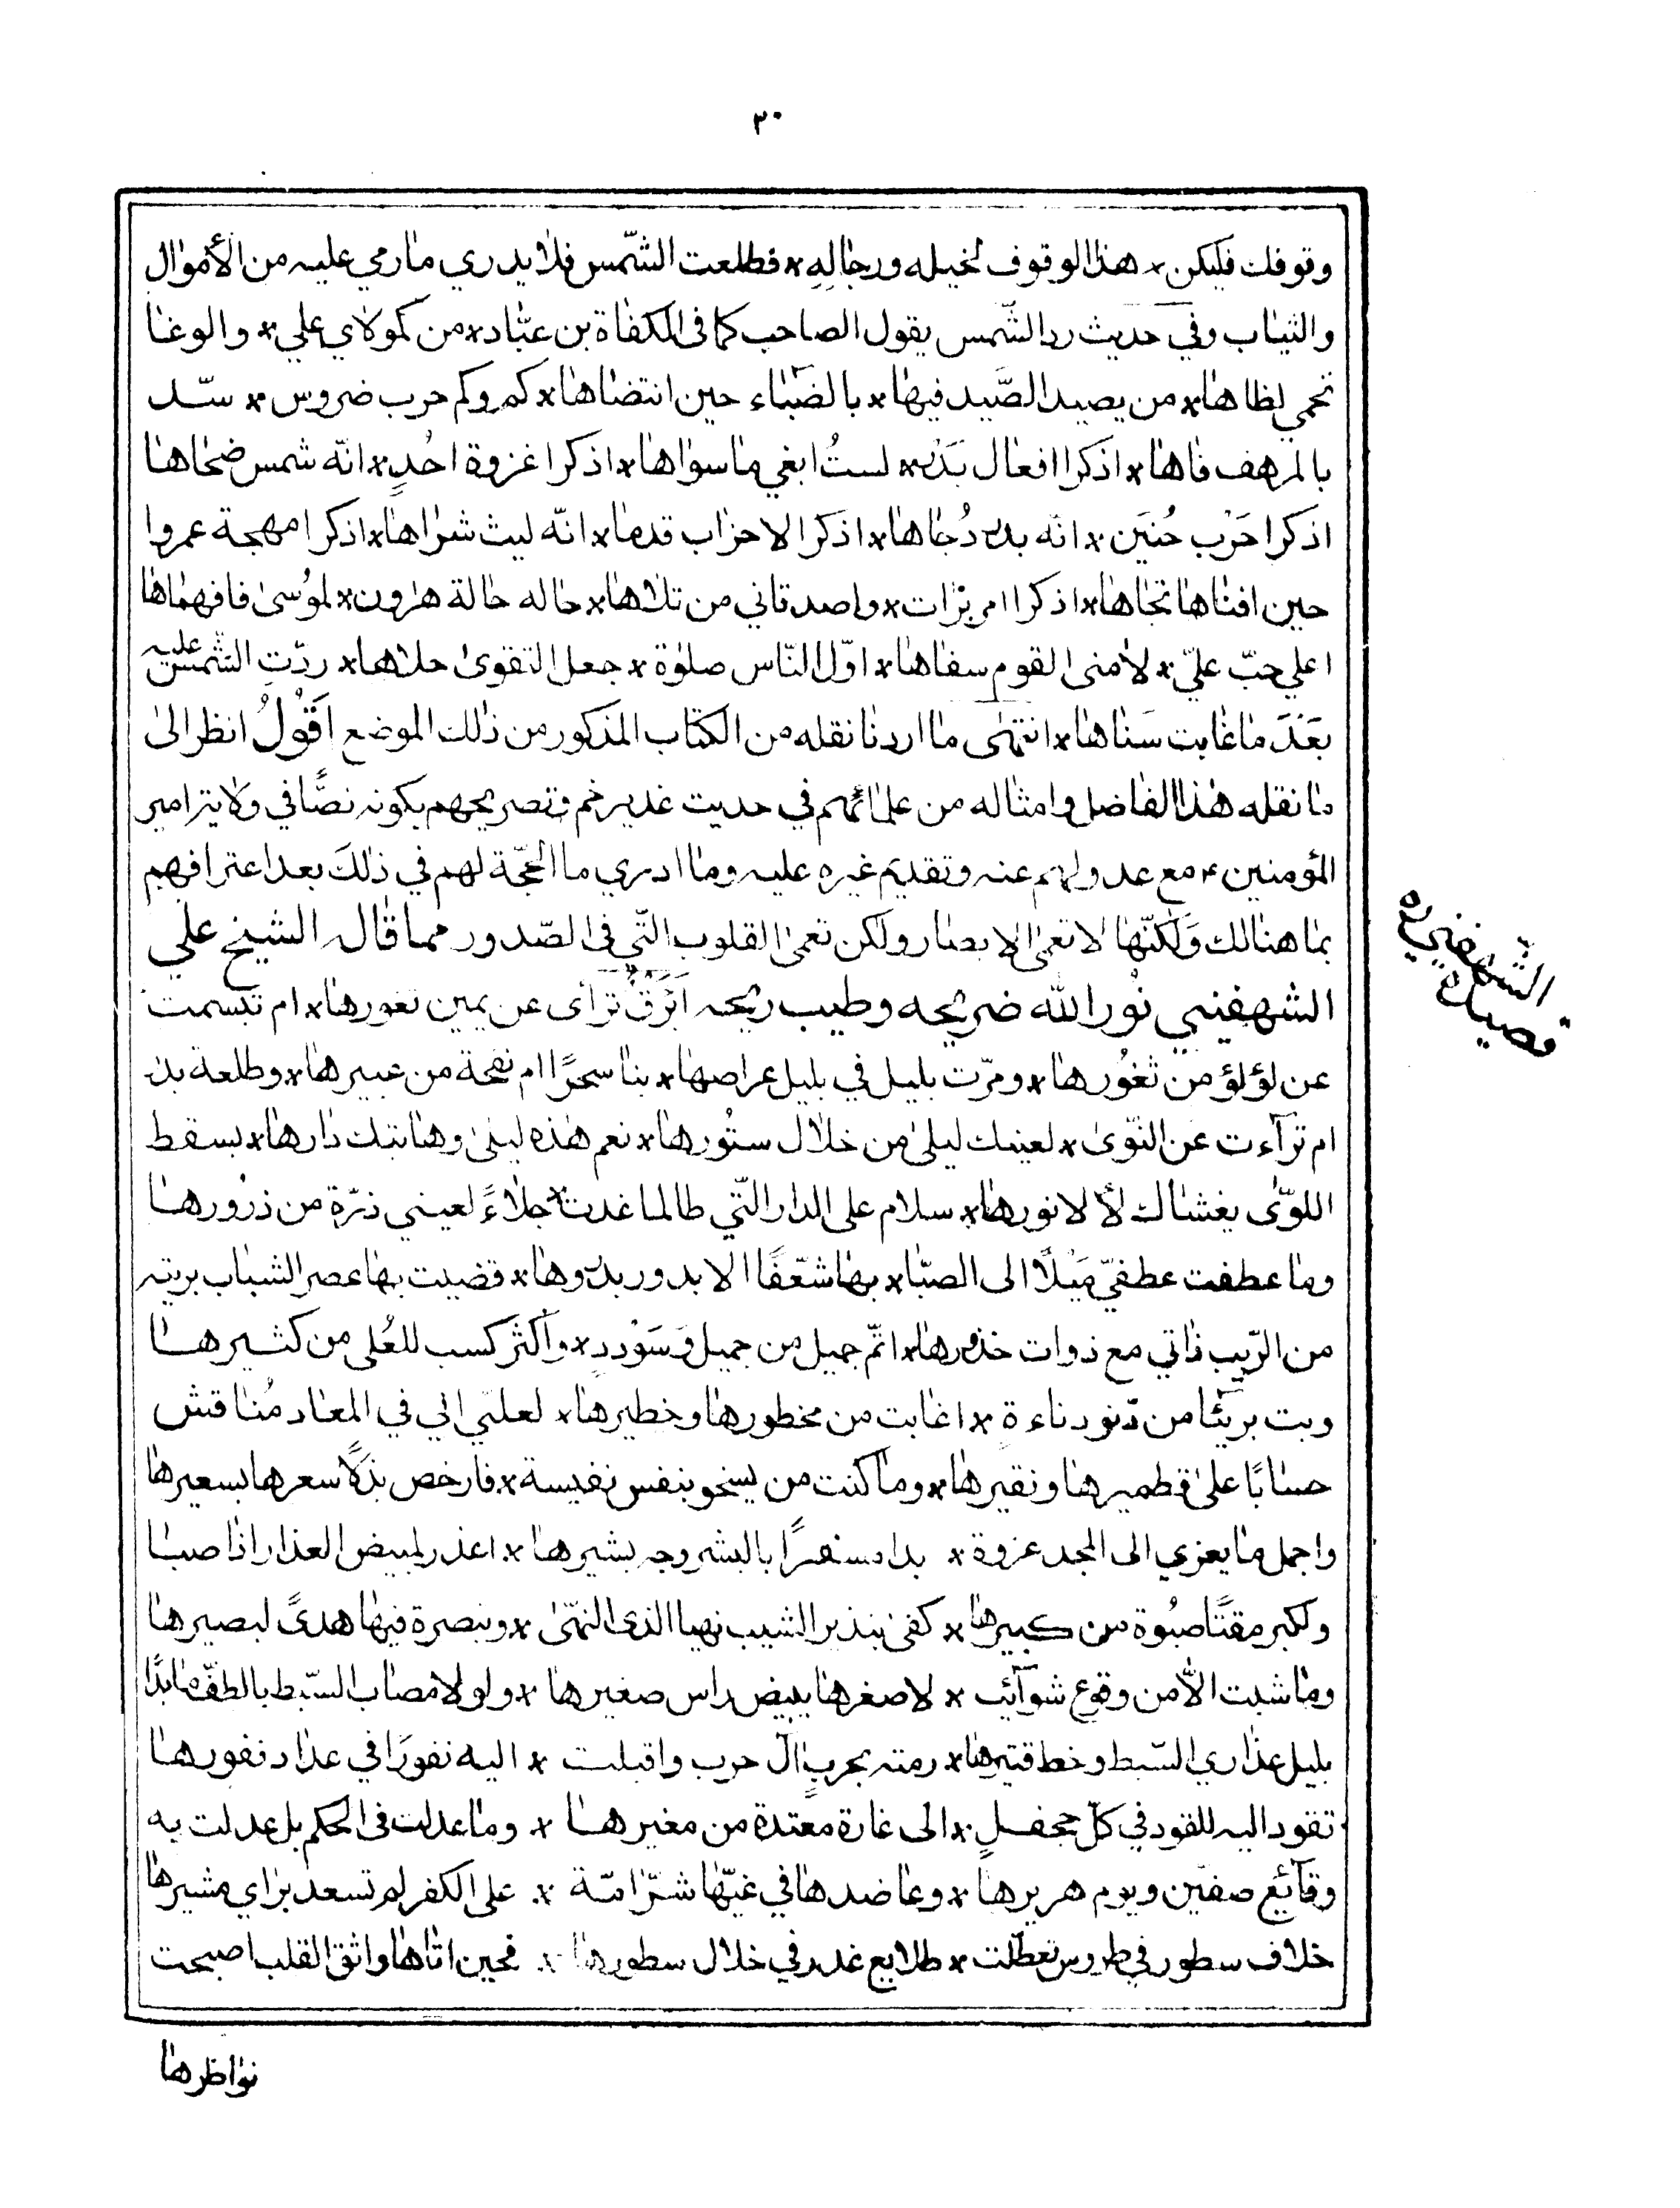 ٣٠
وقوفك فليكن * هذا الوقوف لخيله ورجاله * فطلعت الشّمس فلا يدري ما رمي عليه من الأموال
والثياب وفي حديث رد الشّمس يقول الصاحب كافي الكفاة بن عبّاد * من كمولاي علي * والوغا
تحمي لظاها * من يصيد الصَّيد فيها * بالضّباء حين انتضاها * كم وكم حرب ضروس * سدّ
بالمرهف فاها * اذكرا افعال بَدر * لستُ ابغي ما سواها * اذكرا غزوة احُدٍ * انّه شمس ضحاها
اذكرا حَرْب حُنَين * انّه بدر دُجاها * اذكرا الاحزاب قدما * انّه ليث شراها * اذكرا مهجة عمروا
حين افناها تجاها * اذكرا امر براة * واصدقاني من تلاها * حاله حالة هرون * لموُسى فافهماها
اعلي حبّ عليّ * لامنى القوم سفاها * اوّل النّاس صلوة * جعل التقوى حلاها * ردّتِ الشّمس عليه
بَعْدَ ما غابت سَناها * انتهى ما اردنا نقله من الكتاب المذكور من ذلك الموضع اَقوْلُ انظر الى
ما نقله هذا الفاضل وامثاله من علمائهم في حديث غدير خم وتصريحهم بكونه نصًّا في ولاية امير
المؤمنين ع مع عدولهم عنه وتقديم غيره عليه وما ادري ما الحجّة لهم في ذلكَ بعد اعترافهم
بما هنالك وَلكنّها لا تعمى الابصار ولكن تعمى القلوب التّي في الصّدور مما قال الشيخ علي
الشهفيني نوْر الله ضريحه وطيب ريحه اَبَرْقٌ ترآى عن يمين ثغورها * ام تبسمت
عن لؤلؤ من ثغوُرها * ومرّت بليل في بليل عراصها * بنا سحرًا ام نفحة من عبيرها * وطلعة بدر
ام ترآءت عن النّوى * لعينك ليلى من خلال ستُورها * نعم هذه ليلى وهاتيك دارها * بسقط
اللوّى يغشاك لألاء نورها * سلام على الدار التّي طالما غدت * جلاءً لعيني ذرّة من ذرورها
وما عطفت عطفيّ مَيْلًا الى الصّبا * بها شغفًا الا بدور بدورها * قضيت بها عصر الشباب بريئة
من الرّيب ذاتي مع ذوات خدورها * اتّم جميل من جميل وَسَوْددٍ * واكثر كسب للعُلى من كثيرها
وبت بريئًا من دنو دناءة * اغابت من مخطورها وخطيرها * لعلمي اني في المعاد مُناقش
حسابًا على قطميرها ونقيرها * وما كنت من يسخو بنفس نفيسة * فارخص بذلًا سعرها بسعيرها
واجمل ما يعزي الى المجد عزوة * بدا مسفرًا بالبشر وجه بشيرها * اعذر لمبيض العذار اذا صبا
ولكبر مقتًا صبُوة من كبيرها * كفى بنذير الشيب نهيا الذى النهّى * وتبصرة فيها هدىً لبصيرها
وما شبت الّا من وقوع شوآئب * لاصغرها يبيض راس صغيرها * ولولا مصاب السّبط بالطفّ ما بدَا
بليل عذاري السّبط وخط قتيرها * رمته بحربٍ آل حرب واقبلت * اليه نفورًا في عداد نفورها
تقود اليه للقود في كلّ جحفلٍ * الى غارة معتدة من مغيرها * وما عدلت في الحكم بل عدلت به
وقآئع صفّين ويوم هريرها * وعاضدها في غيّها شرّ امّة * على الكفر لم تسعد براي مشيرها
خلاف سطور في طروس تعطّلت * طلايع غدر في خلال سطورها * فحين اتاها واثق القلب اصبحت
نواظرها
قصيدة
الشهفيني ره